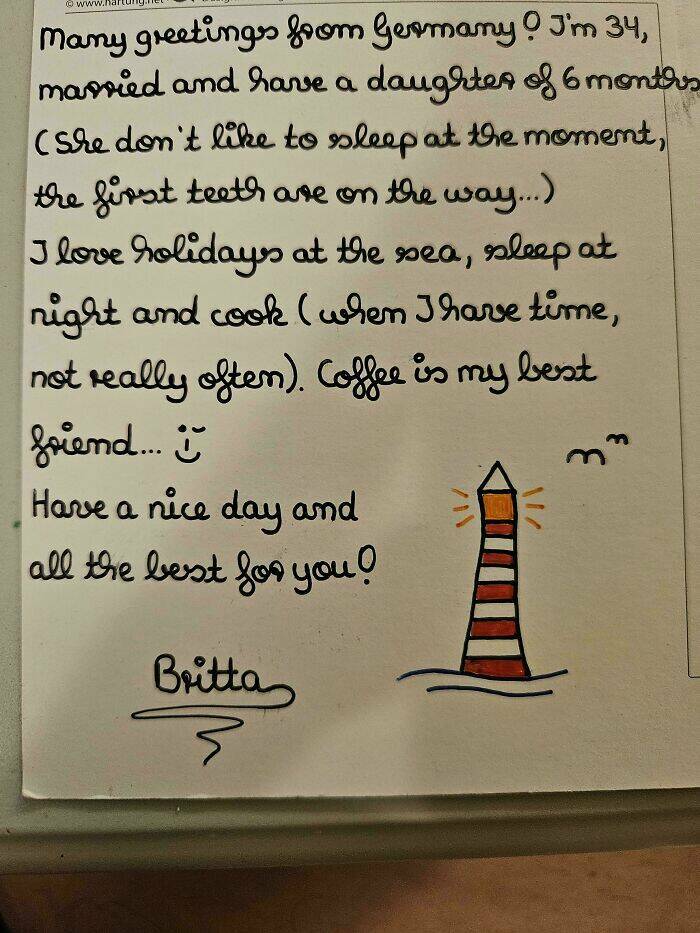 © www.hartung.net
Many greetings from Germany! I'm 34,
married and have a daughter of 6 months
(She don't like to sleep at the moment,
the first teeth are on the way...)
I love holidays at the sea, sleep at
night and cook (when I have time,
not really often). Coffee is my best
friend...
Have a nice day and
all the best for you!
Britta